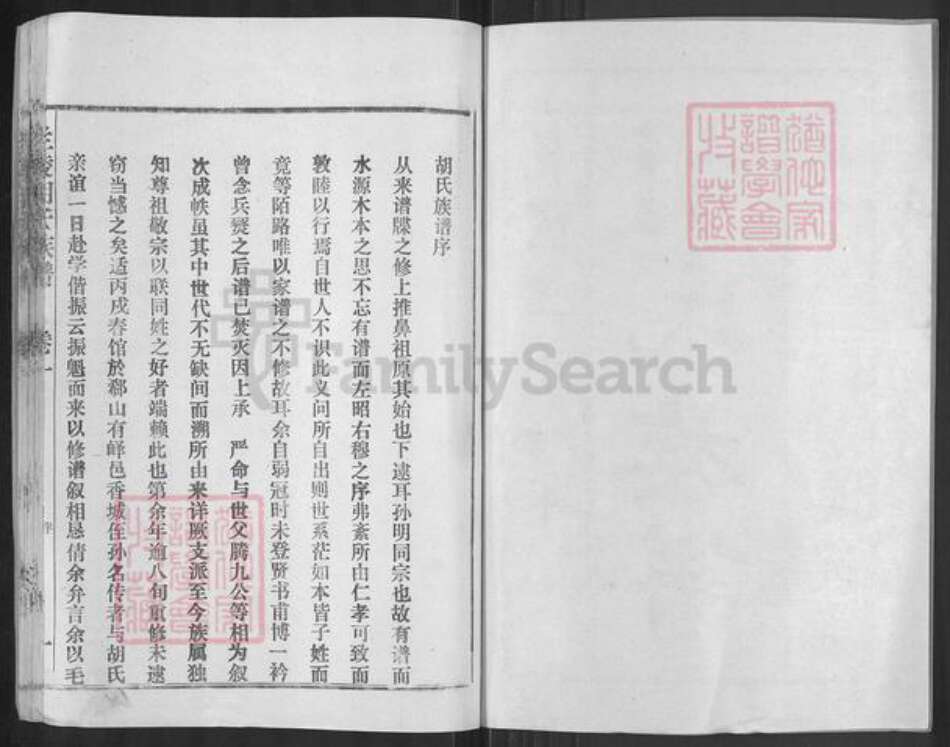 胡氏族谱序
从来谱牒之修上推鼻祖原其始也下逮耳孙明同宗也故有谱而
水源木本之思不忘有谱而左昭右穆之序弗紊所由仁孝可致而
敦睦以行焉自世人不识此义问所自出则世系茫如本皆子姓而
竟等陌路唯以家谱之不修故耳余自弱冠时未登贤书甫博一衿
曾念兵燹之后谱已焚灭因上承 严命与世父腾九公等相为叙
次成帙虽其中世代不无缺间而溯所由来详厥支派至今族属独
知尊祖敬宗以联同姓之好者端赖此也第余年逾八旬重修未逮
窃当憾之矣适丙戍春馆於鄒山有峄邑香城侄孙名传者与胡氏
亲谊一日赴学偕振云振魁而来以修谱叙相恳倩余弁言余以毛
胡氏族谱
卷一
序
一
谱学会
收藏
FamilySearch